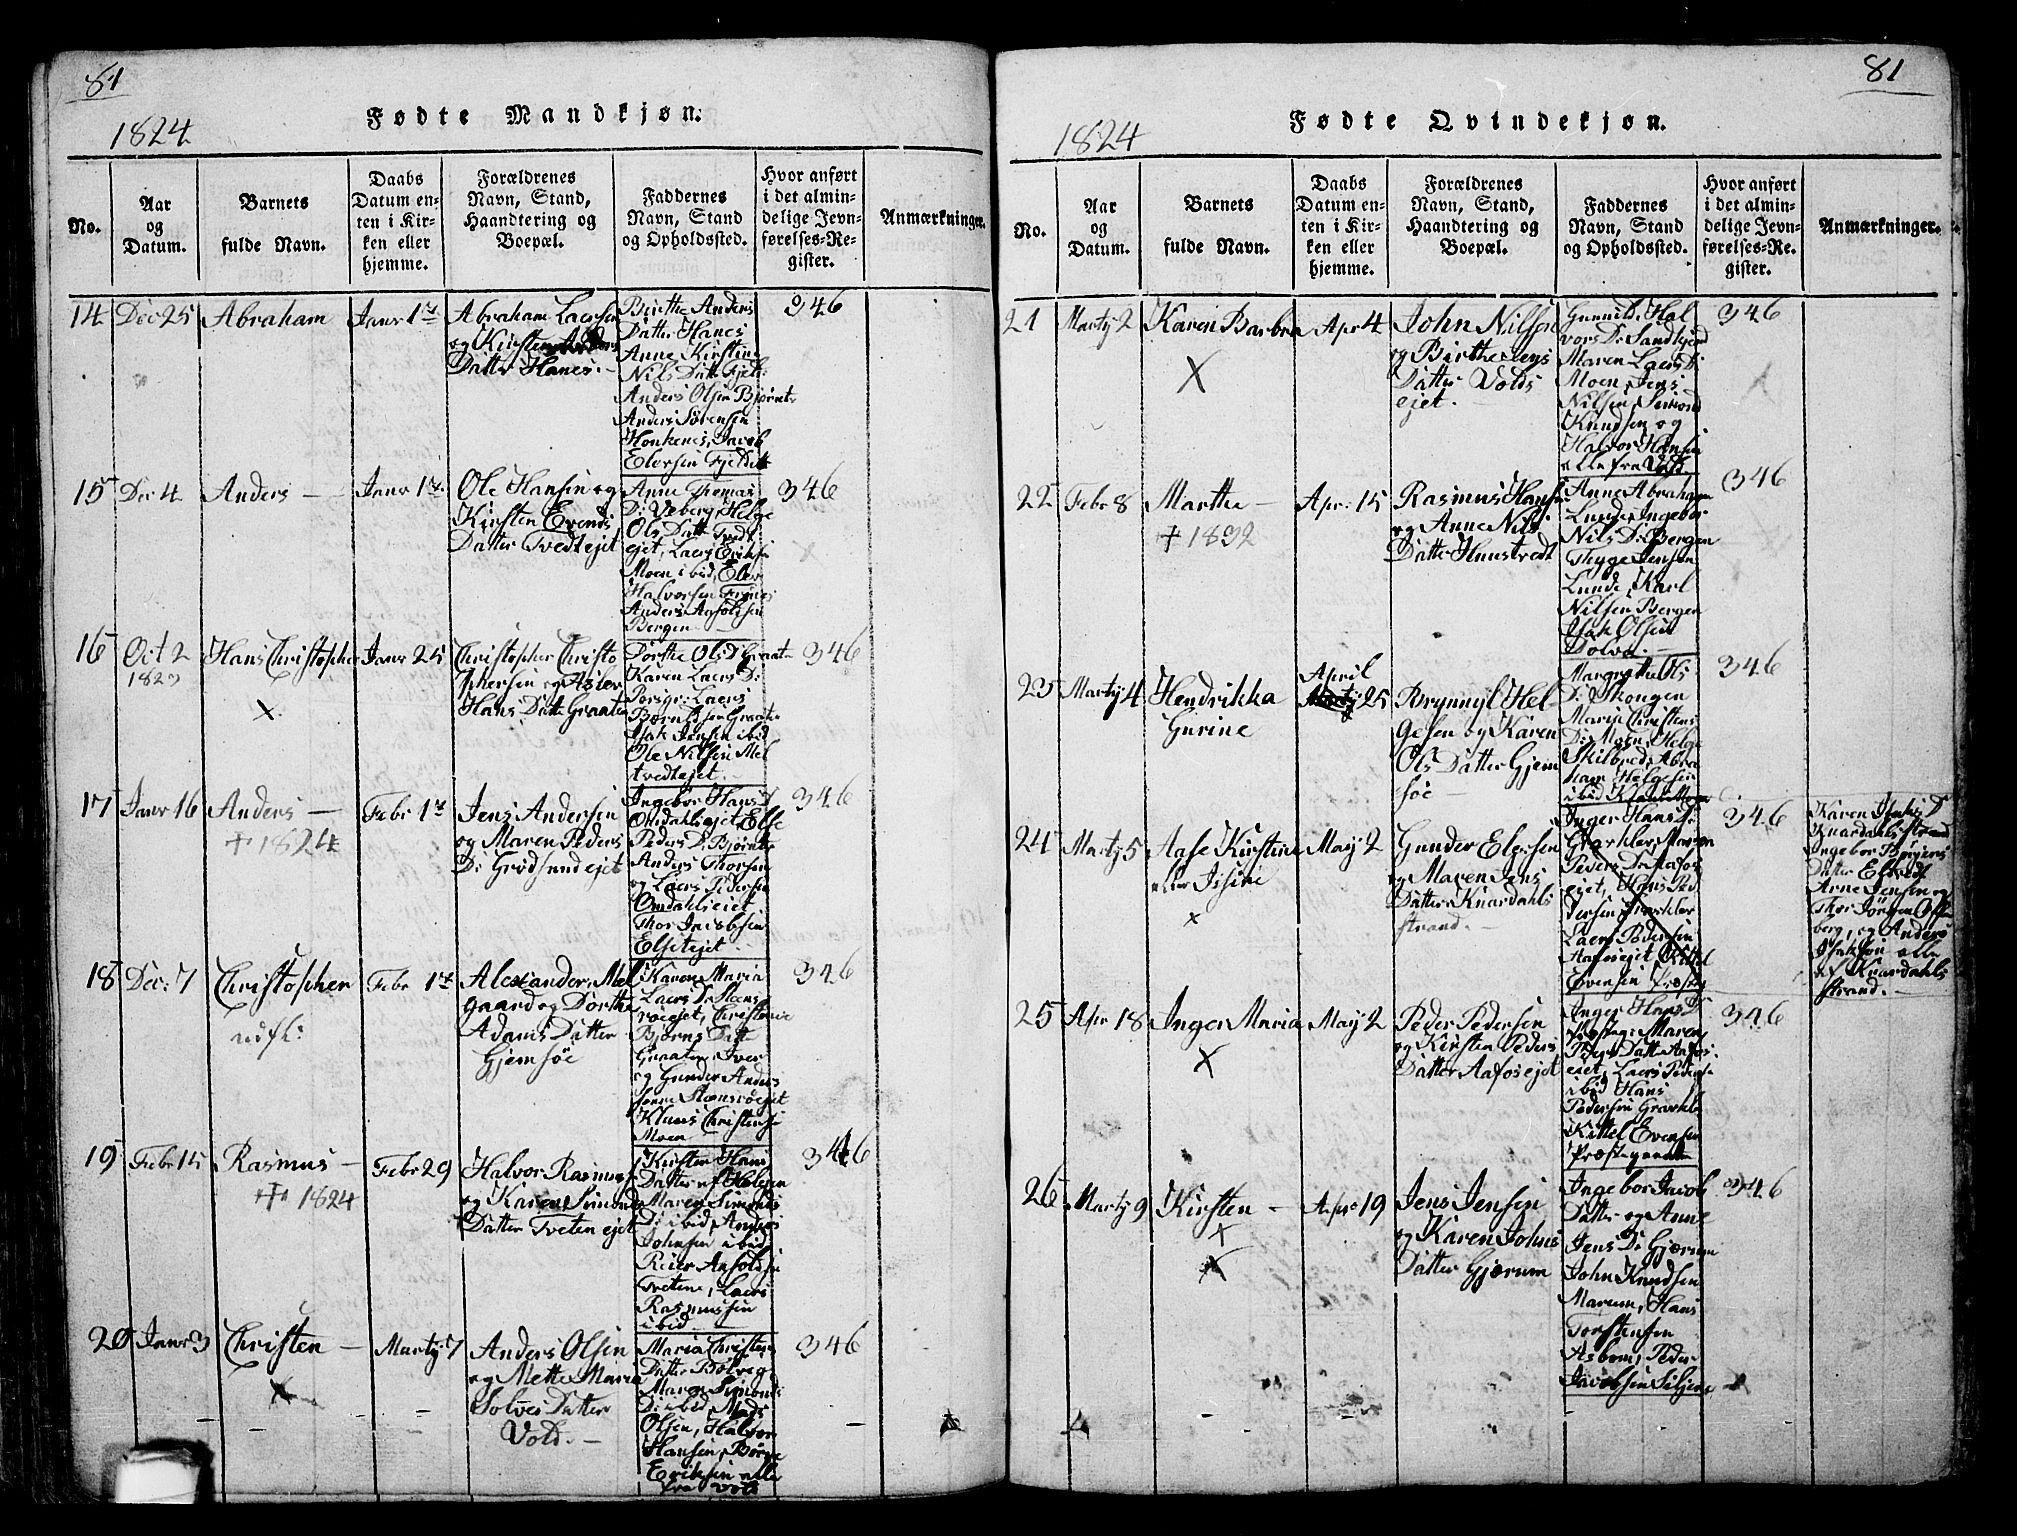 81
1824
Fødte Mandkjøn.
No.
Aar
og
Datum.
Barnets
fulde Navn.
Daabs
Datum en-
ten i Kir-
ken eller
hjemme.
Forældrenes
Navn, Stand,
Haandtering og
Boepæl.
Faddernes
Navn, Stand
og Opholdssted.
Hvor anført
i det almin-
delige Jevn-
førelses-Re-
gister.
Anmærkninger.
14 Dec 25 Abraham Janr 1
Abraham Laersen
og Kirsten Anders
Datter Hanes.
Birthe Anders
Datt: Hanes
Anne Kirstine
Nils Datt Fjeld
Anders Olsen Bjørnt
Anders Sørensen
Honkenes, Jacob
Elersen
346
15 Dec 4 Anders Janr 1
Ole Hansen og
Kirsten Evends
Datter Tvedtejet
Anne Thomas
D: Veberg, Helge
Ols Datt Tvedt
ejet, Laers Eriksen
Moen ibid, Eler
Halvorsen
Anders
Bergen
346
16 Oct 2
1823
Hans Christopher Janr 25
X
Christopher Christo
phersen og
Hans Datt Graaten
Dorthe Ols D Graat
Karen Laers D:
Borgr: Laers
Graaten
Isak Jensen ibid
Ole Nilsen Mel
tvedtejet
346
17 Janr 16 Anders Febr 1
+ 1824
Jens Andersen
og Maren Peders
D: Grødsundejet
Ingebor Hans D
Omdahlsejet, Else
Peders D: Bjørnt
Anders Thorsen
og Laers Pedersen
Omdahlsejet
Thor Jacobsen
Elsetejet
346
18 Dec: 7 Christopher Febr 1
Alexander Mel
gaard og Dorthe
Adams Datter
Gjemsøe
Karen Maria
Laers D: Steens
røejet, Christense
Bjørns Datt
Graaten, Iver
og Gunder Anders
Steensrøejet
Klaus Christensen
Moen
346
19 Febr 15 Rasmus Febr 29
+ 1824
Halvor Rasmus
og Karen Simons
Datter Tvetenejet
Kirsten Hans
Datter af
Maren Simons
D: ibid, Anders
Johnsen ibid
Reier
Tveten, Laers
Rasmussen
ibid
346
20 Janr 3 Christen Martij 7
X
Anders Olsen
og Mette Maria
Solves Datter
Vold.
Maria Christens
Datter Bolvig
Maren Simonds
D: ibid, Mads
Olsen, Halvor
Hansen, Børge
Eriksen alle
fra Vold
346
81
1824
Fødte Qvindekjøn.
No.
Aar
og
Datum.
Barnets
fulde Navn.
Daabs
Datum en-
ten i Kir-
ken eller
hjemme.
Forældrenes
Navn, Stand,
Haandtering og
Boepæl.
Faddernes
Navn, Stand
og Opholdssted.
Hvor anført
i det almin-
delige Jevn-
førelses-Re-
gister.
Anmærkninger.
21 Martij 2 Karen Barbra Apr 4
X
John Nilsen
og Birthe Jens
Datter Volds
ejet.
Gunnild Hal
vors D:
Maren Laers D:
Moen, Jens
Nilsen, Simond
Knudsen og
Halvor Hansen
alle fra Vold
346
22 Febr 8 Marthe Apr: 15
+ 1832
Rasmus Hansen
og Anne Nils
Datter Hunstvedt
Anne Abraham
Lunde, Ingebor
Nils D: Bergen
Thyge Jensen
Lunde, Karl
Nilsen Bergen
Isak Olsen
Dolva.
346
23 Martij 4 Hendrikka
Gurine
April
25
Brynnyl Hel
gesen og Karen
Ols Datter Gjem
søe
Margrethe Ols
D: Skongen
Maria Christens
D: Moen, Helge
Skilbred, Abra
ham Helgesen
ibid
346
24 Martij 5 Aase Kirstine Maij 2
eller Issine
X
Gunder Elersen
og Maren Jens
Datter Knardahls
strand.
Inger Hans D:
Graakler, Maren
Peders D: Aafos
ejet, Hans Pe
dersen Graakler
Laers Pedersen
Aafosejet, Kittel
Evensen
346
Karen Isaks D
Knardahlsstrand
Ingebor Børjers
Datter
Arne Jensen og
Thor Jørgen
berg, og Anders
Isaksen alle
af Knardahls
strand.
25 Apr 18 Inger Maria Maij 2
X
Peder Pedersen
og Kirsten Peders
Datter Aafosejet
Inger Hans D:
Maren
Peders Datt Aafos
ejet, Laers Peders
ibid Hans
Pedersen Graakler
Kittel Evensen
Præstegaarden
346
26 Martij 9 Kirsten Apr 19
X
X
Jens Jensen
og Karen Johns
Datter Gjerum
Ingebor Jacob
Datter og Anne
Jens D: Gjerum
John Knudsen
Marum, Hans
Torstensen
Asbom, Peder
Jacobsen Siljan
346